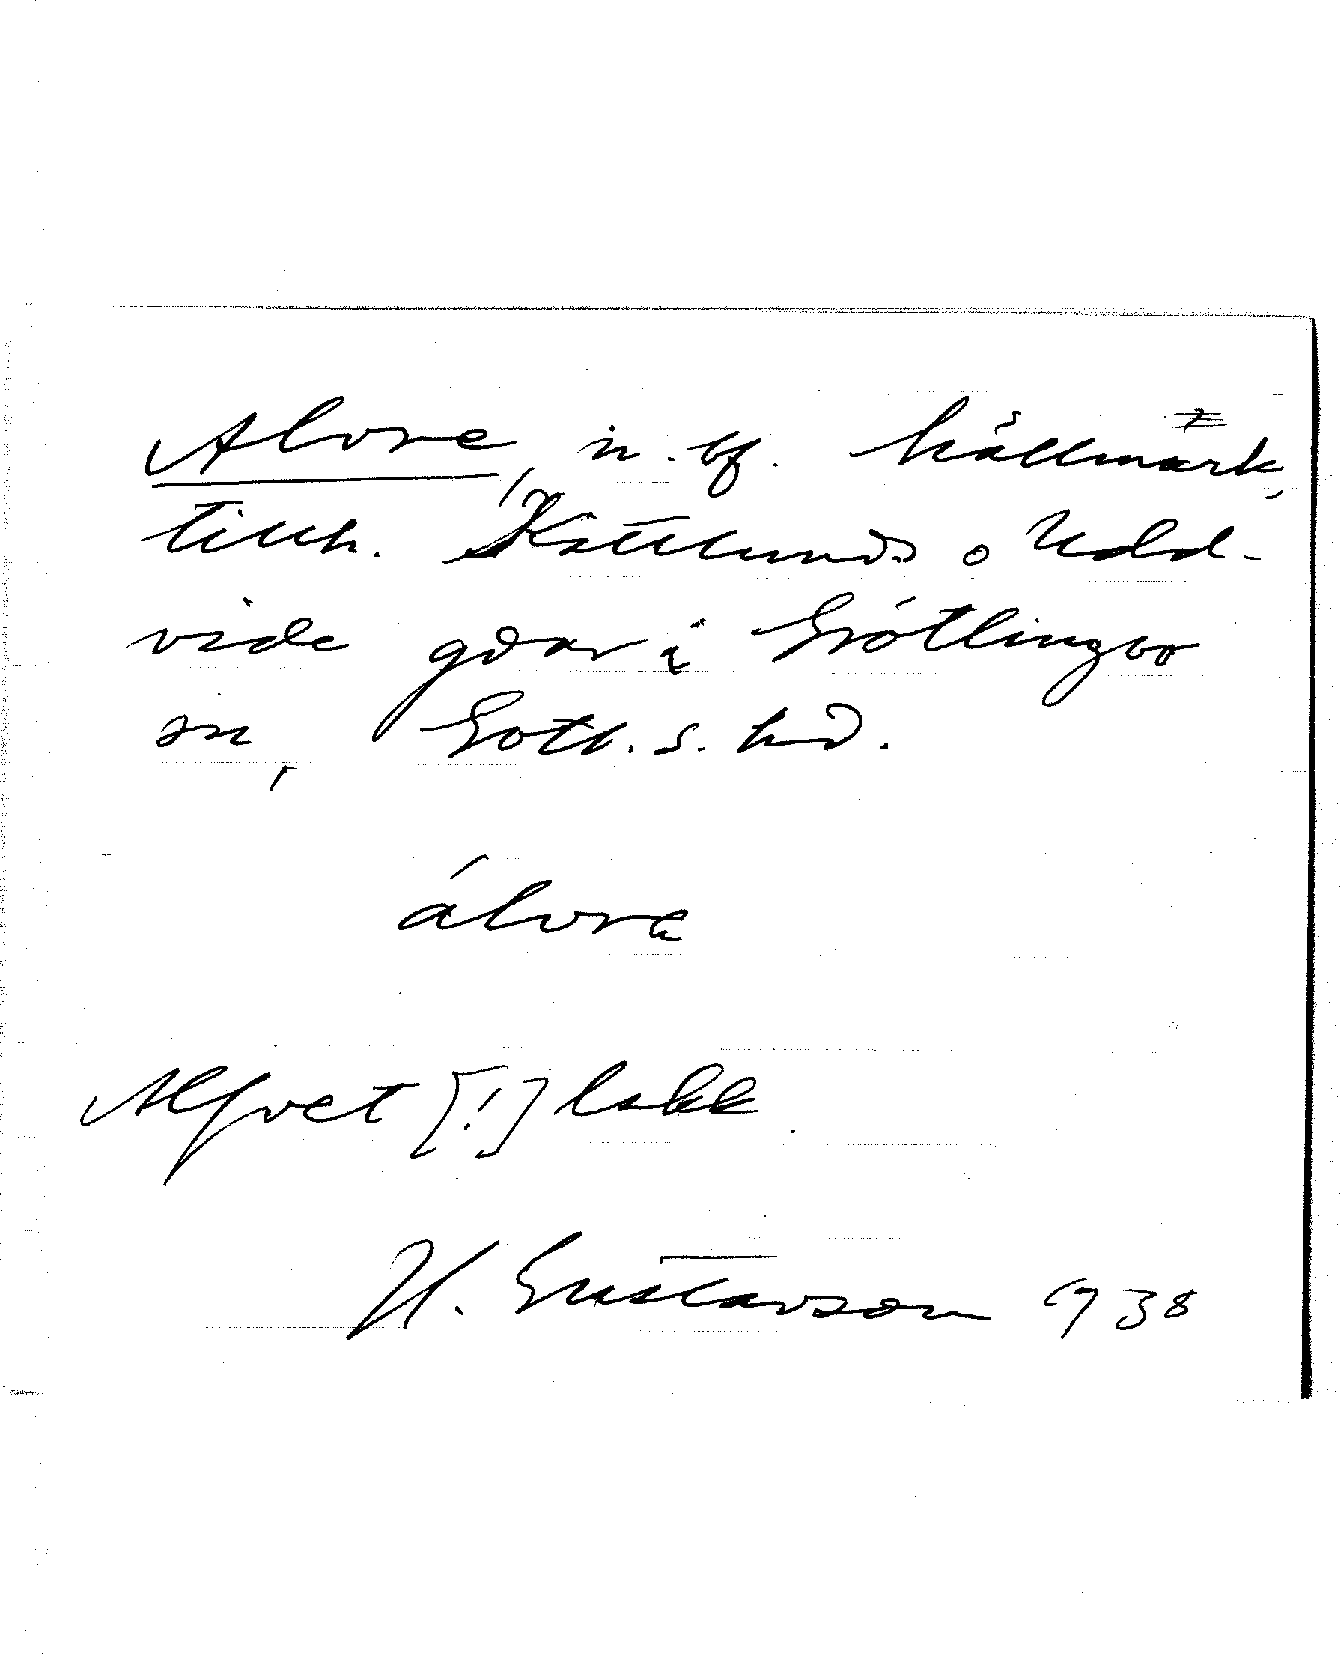 Alvre, n. bf. hällmark,
tillh. Kattlunds o Udd-
vide gdar i Grötlingbo
sn, Gotl. s. hd.
álvrę
Alfvret [!] lskk
H. Gustavson 1938